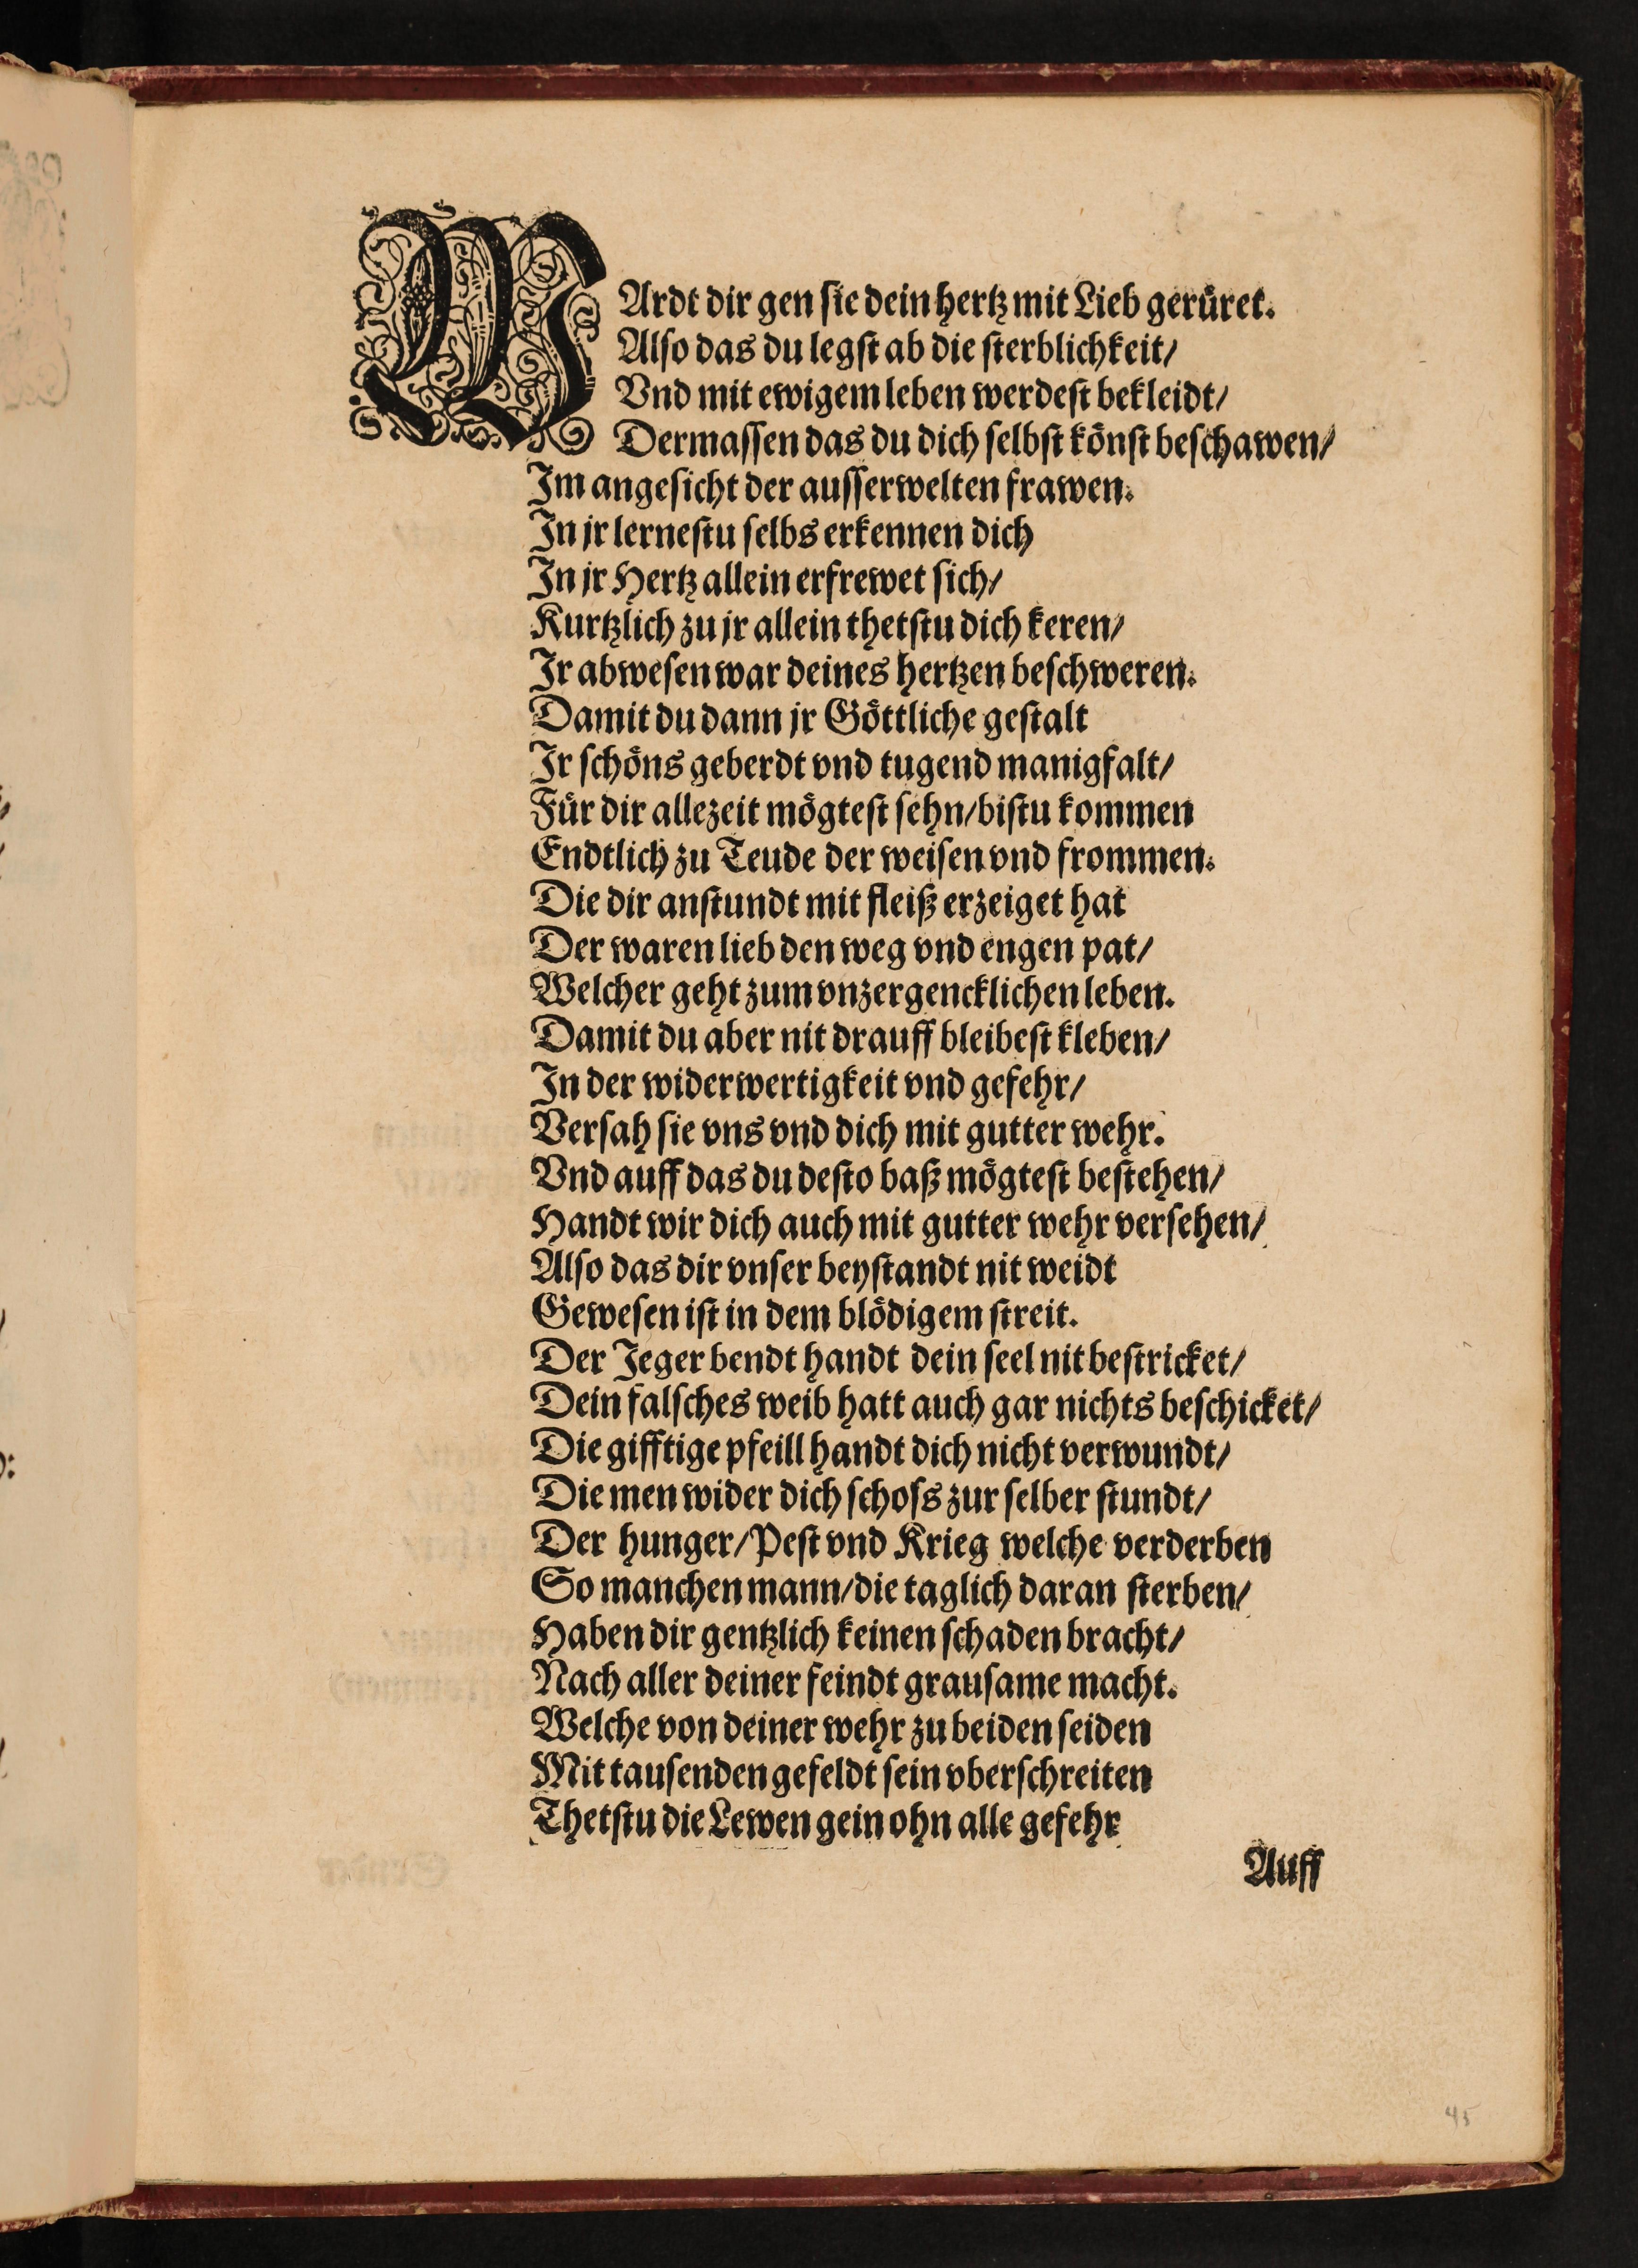 WArdt dir gen sie dein hertz mit Lieb gerüret.
Also das du legst ab die sterblichkeit/
Vnd mit ewigem leben werdest bekleidt/
Dermassen das du dich selbst könst beschawen/
Im angesicht der ausserwelten frawen.
In jr lernestu selbs erkennen dich
In jr Hertz allein erfrewet sich/
Kurtzlich zu jr allein thetstu dich keren/
Ir abwesen war deines hertzen beschweren.
Damit du dann jr Göttliche gestalt
Ir schöns geberdt vnd tugend manigfalt/
Für dir allezeit mögtest sehn/bistu kommen
Endtlich zu Teude der weisen vnd frommen.
Die dir anstundt mit fleiß erzeiget hat
Der waren lieb den weg vnd engen pat/
Welcher geht zum vnzergencklichen leben.
Damit du aber nit drauff bleibest kleben/
In der widerwertigkeit vnd gefehr/
Versah sie vns vnd dich mit gutter wehr.
Vnd auff das du desto baß mögtest bestehen/
Handt wir dich auch mit gutter wehr versehen/
Also das dir vnser beystandt nit weidt
Gewesen ist in dem blödigem streit.
Der Jeger bendt handt dein seel nit bestricket/
Dein falsches weib hatt auch gar nichts beschicket/
Die gifftige pfeill handt dich nicht verwundt/
Die men wider dich schoss zur selber stundt/
Der hunger/Pest vnd Krieg welche verderben
So manchen mann/die taglich daran sterben/
Haben dir gentzlich keinen schaden bracht/
Nach aller deiner feindt grausame macht.
Welche von deiner wehr zu beiden seiden
Mit tausenden gefeldt sein vberschreiten
Thetstu die Lewen gein ohn alle gefehr
Auff
45